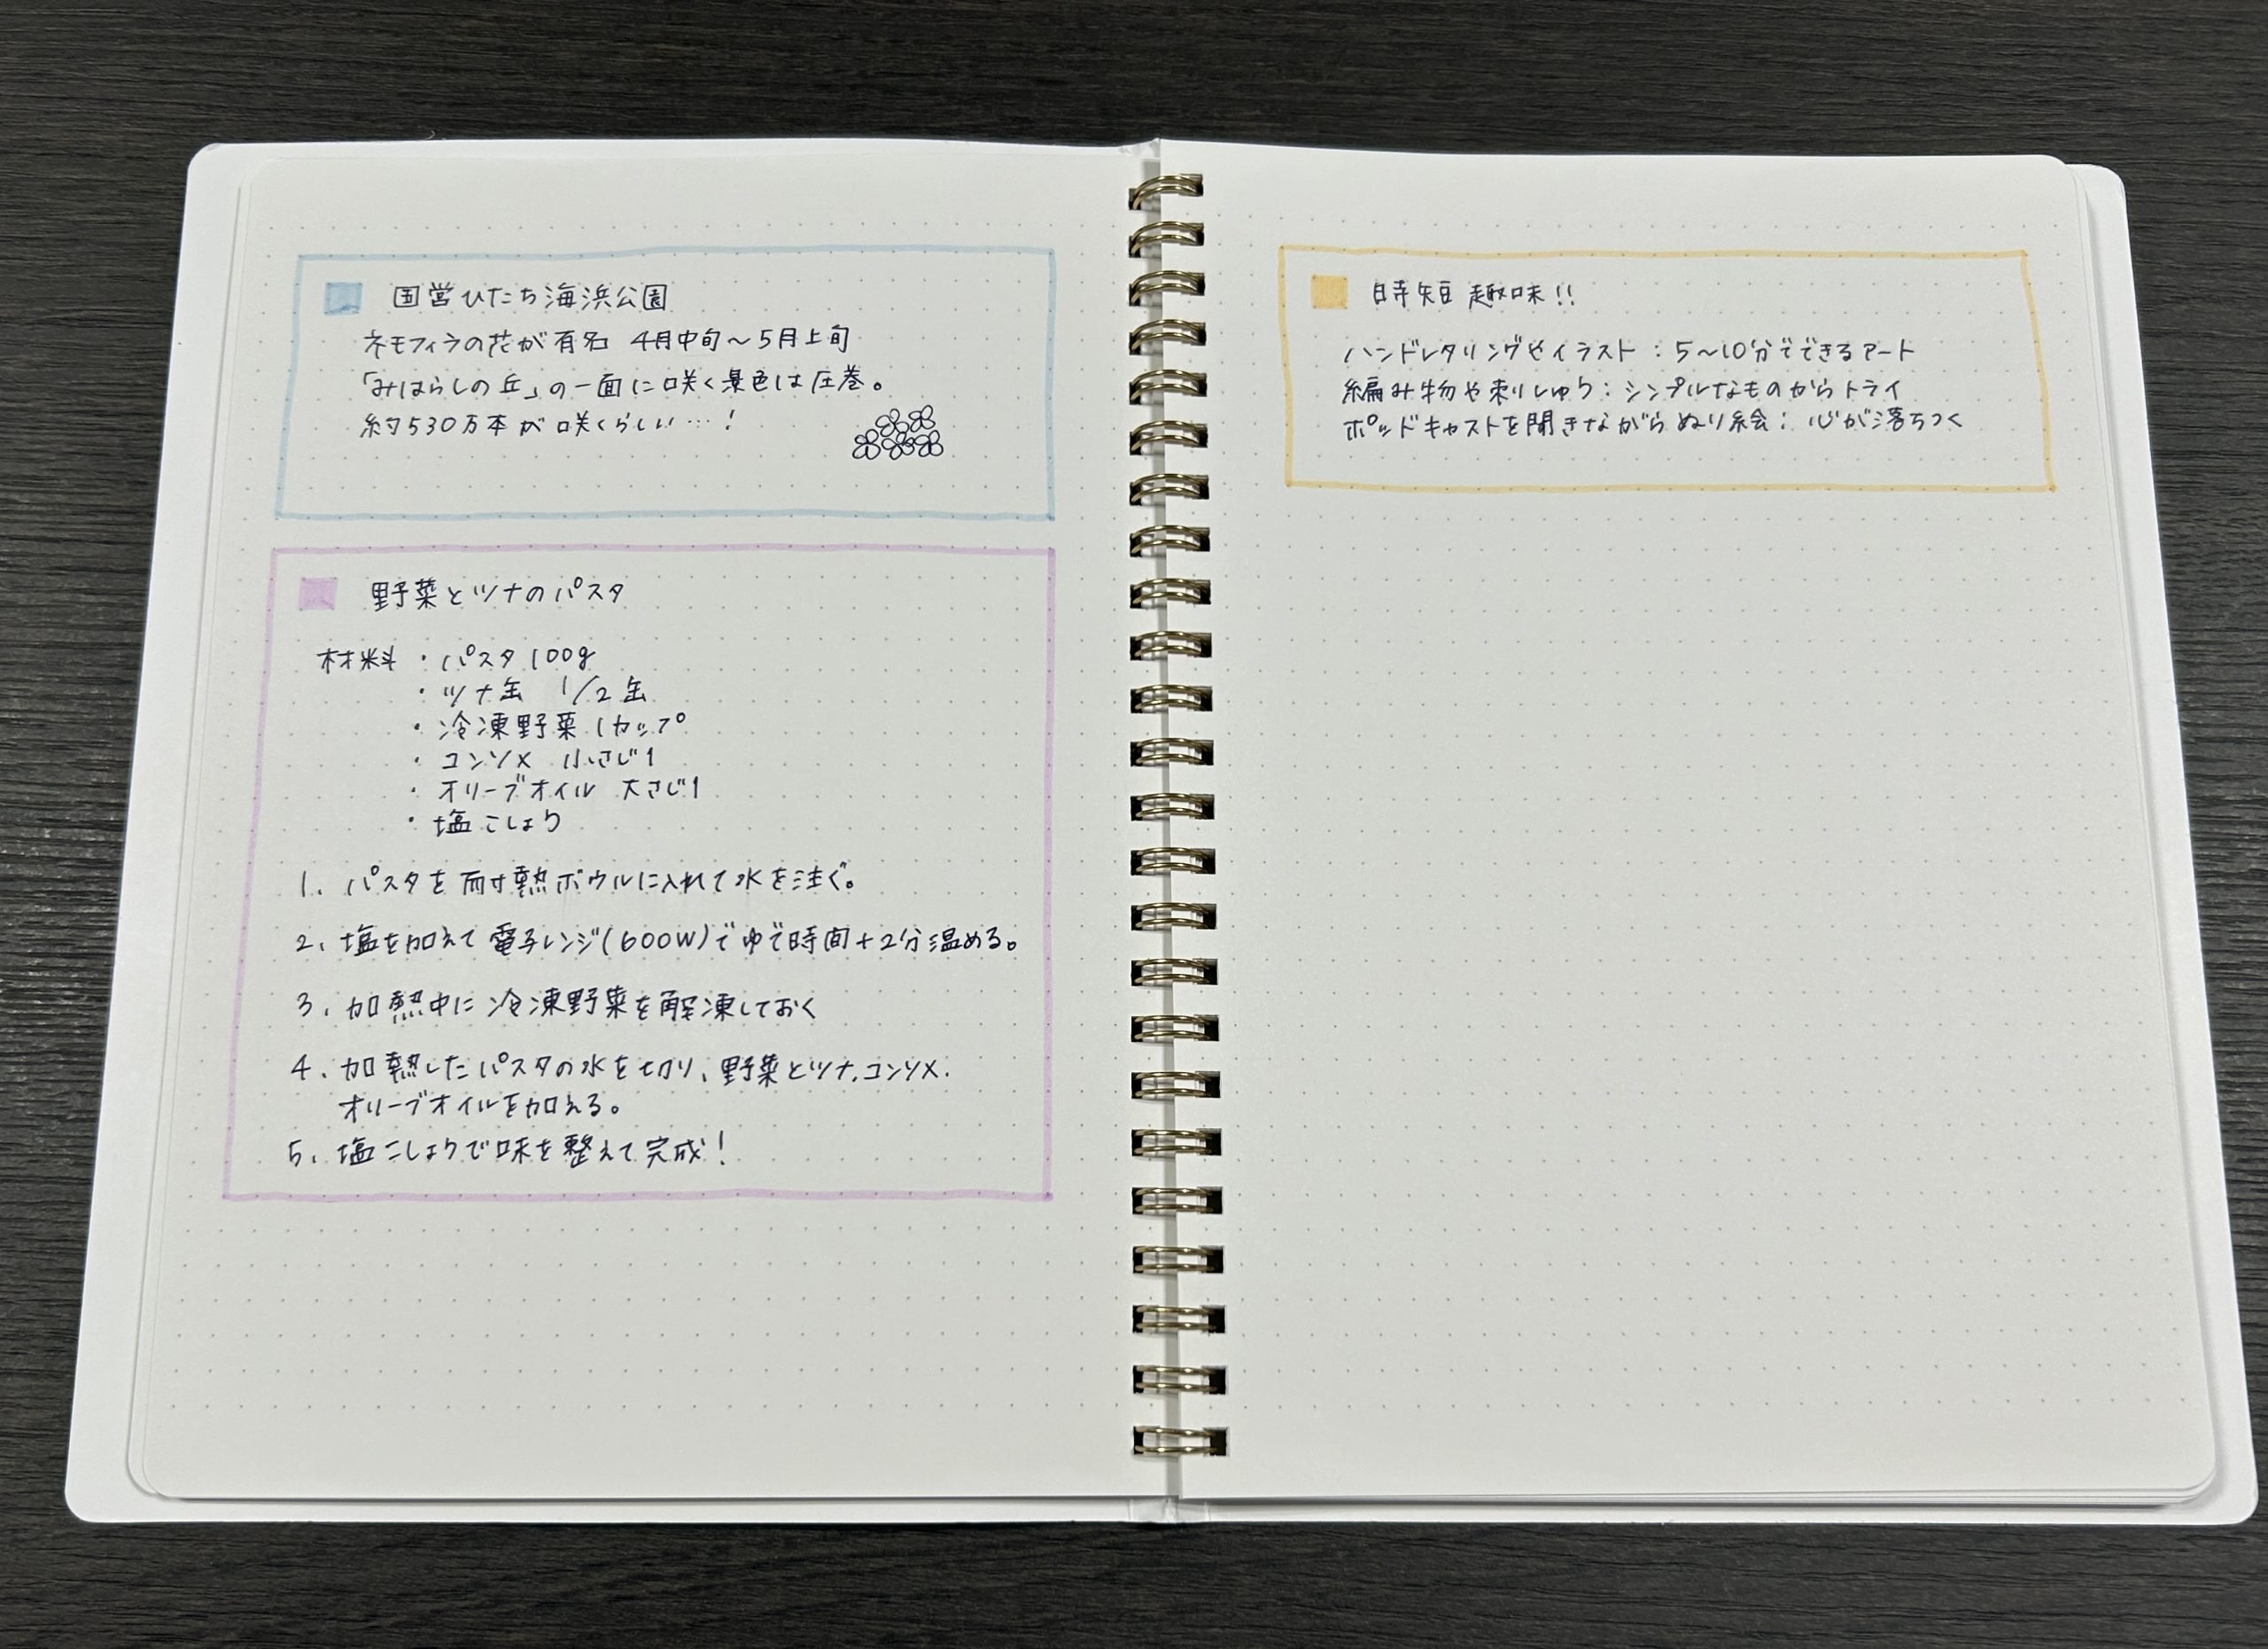 国営ひたち海浜公園
ネモフィラの花が有名 4月中旬〜5月上旬
「みはらしの丘」の一面に咲く景色は圧巻。
約530万本が咲くらしい…!
野菜とツナのパスタ
材料 ・パスタ 100g
・ツナ缶 1/2缶
・冷凍野菜 1カップ
・コンソメ 小さじ1
・オリーブオイル 大さじ1
・塩こしょう
1. パスタを耐熱ボウルに入れて水を注ぐ。
2. 塩を加えて電子レンジ(600W)でゆで時間+2分温める。
3. 加熱中に冷凍野菜を解凍しておく
4. 加熱したパスタの水を切り、野菜とツナ、コンソメ、
オリーブオイルを加える。
5. 塩こしょうで味を整えて完成!
時短趣味!!
ハンドレタリングやイラスト:5〜10分でできるアート
編み物や刺しゅう:シンプルなものからトライ
ポッドキャストを聞きながらぬり絵:心が落ちつく